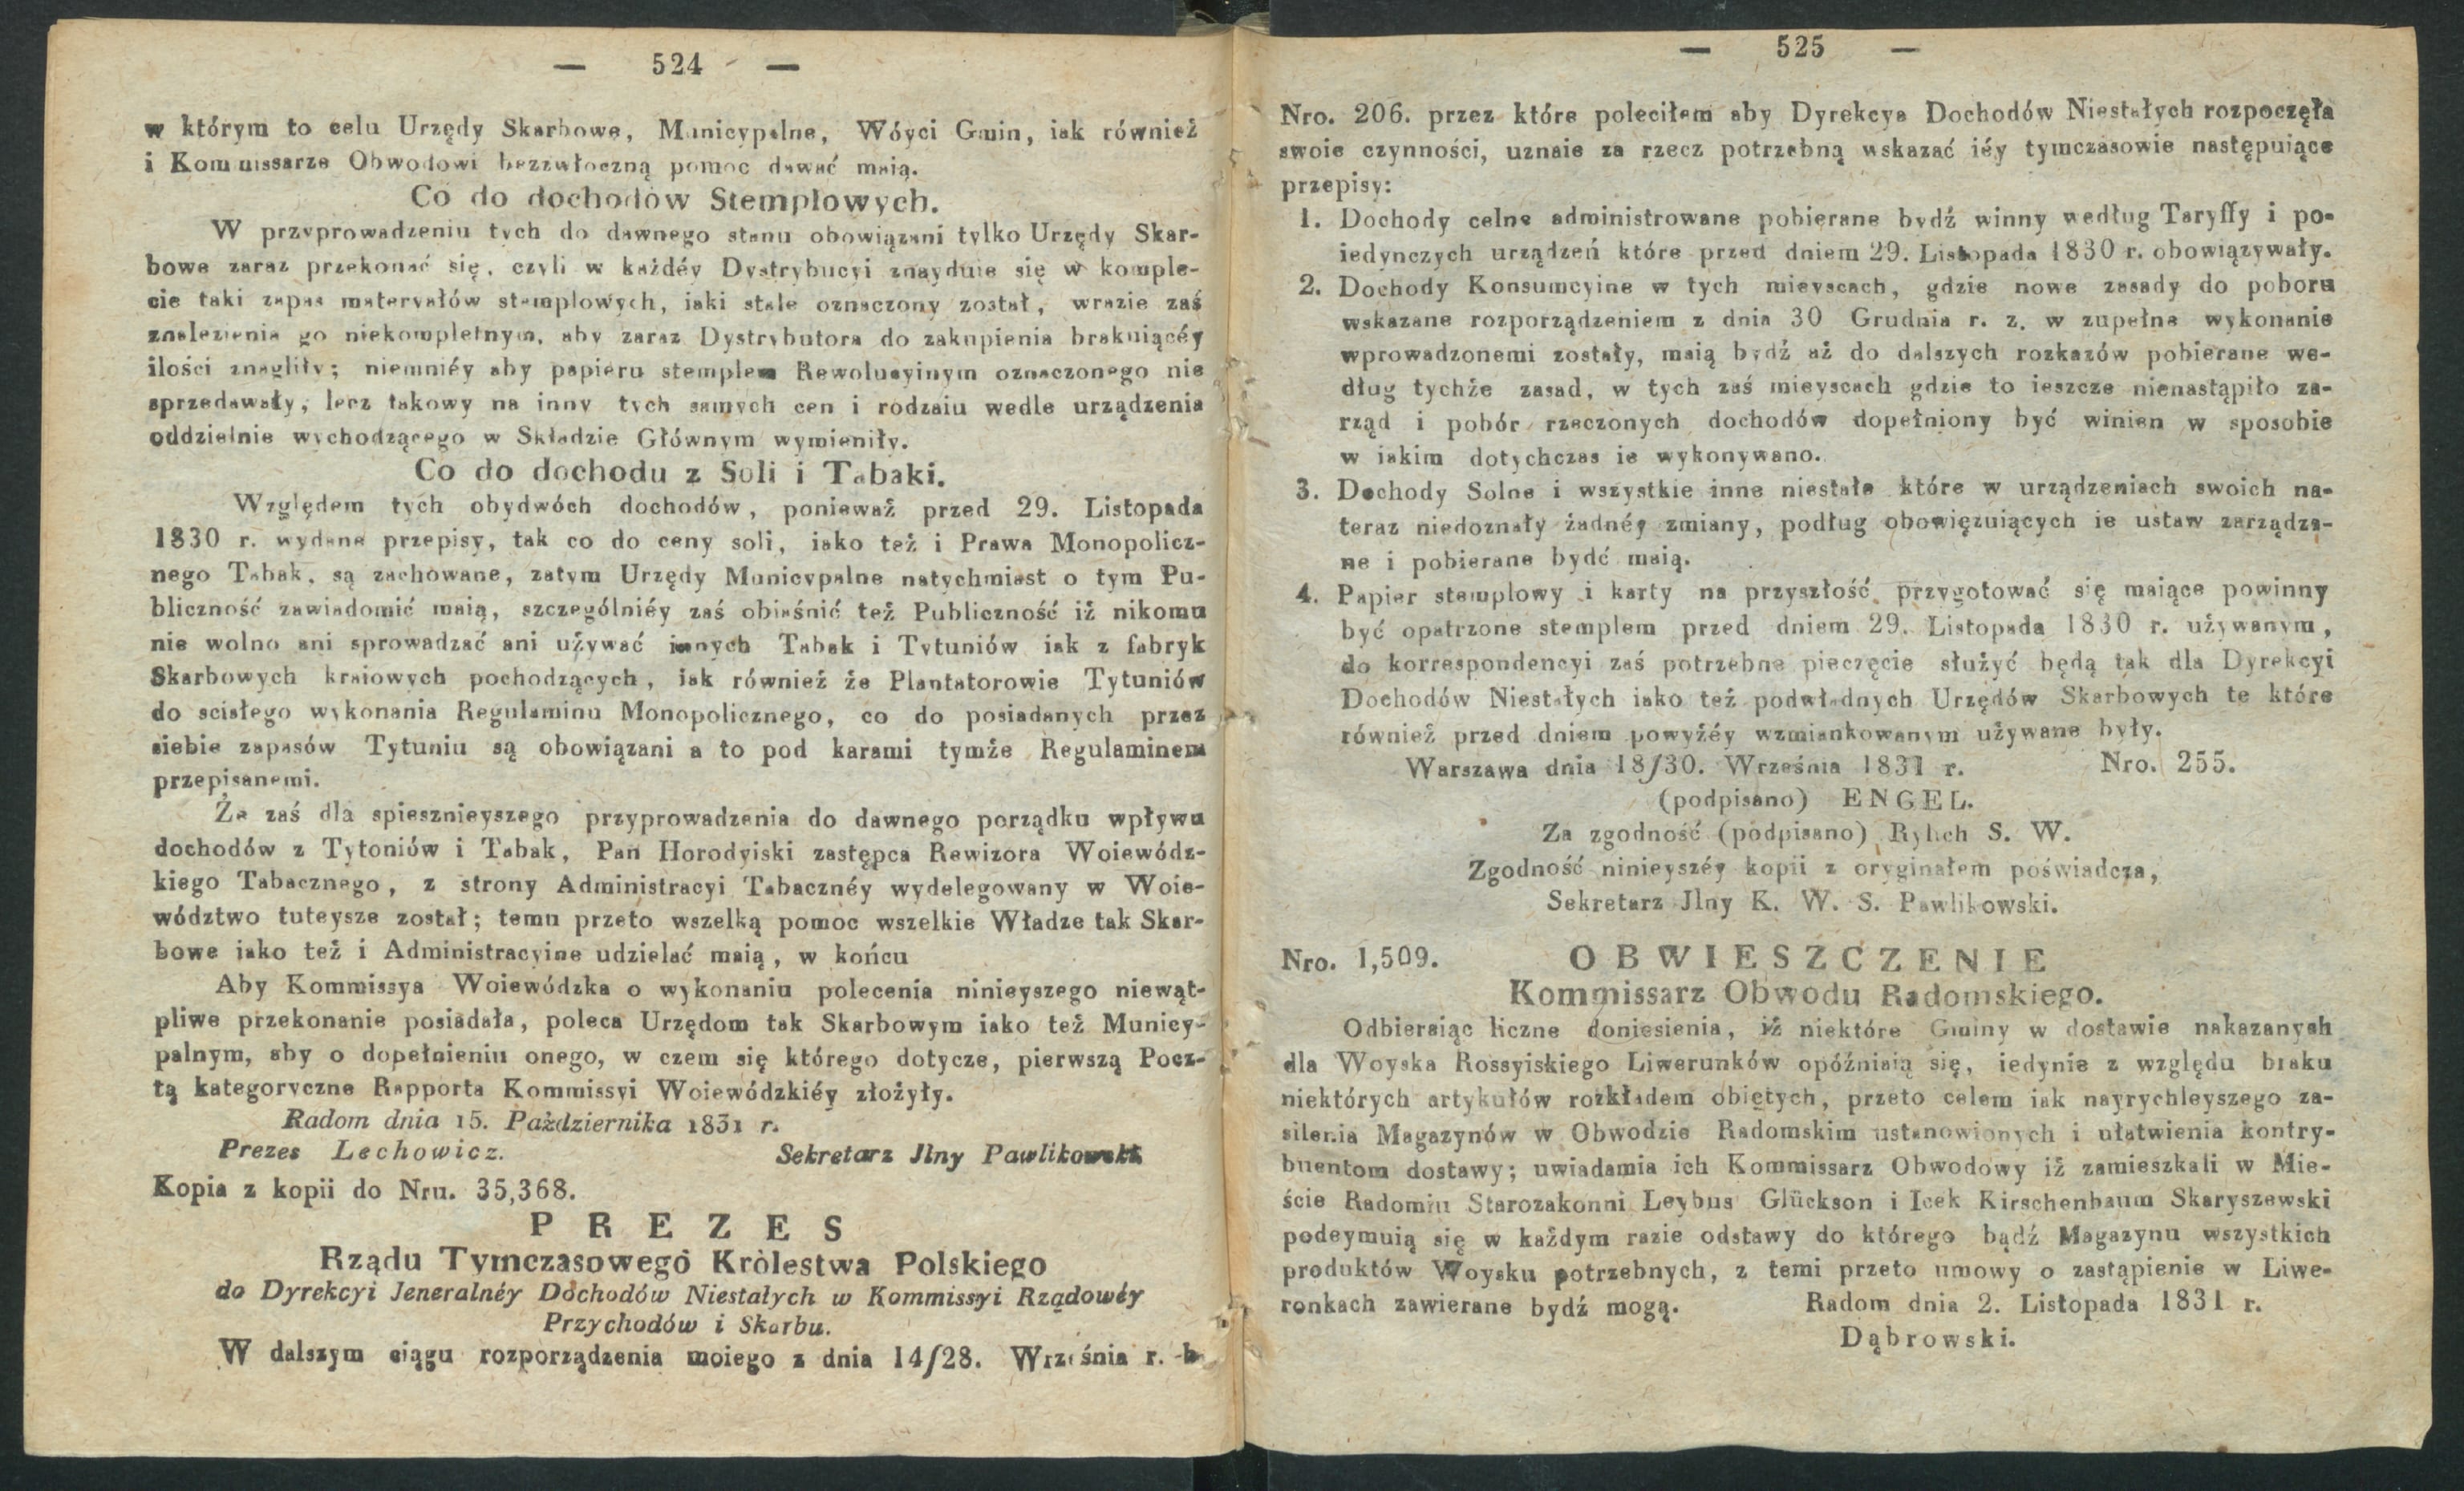 — 524 —
w którym to celu Urzędy Skarbowe, Municypalne, Wóyci Gmin, iak również
i Kommissarze Obwodowi bezzwłoczną pomoc dawać maią.
Co do dochodów Stemplowych.
W przyprowadzeniu tych do dawnego stanu obowiązani tylko Urzędy Skar-
bowe zaraz przekonać się, czyli w każdéy Dystrybucyi znayduie się w komple-
cie taki zapas materyałów stemplowych, iaki stale oznaczony został, wrazie zaś
znalezienia go niekompletnym, aby zaraz Dystrybutora do zakupienia brakuiącéy
ilości znagliły; niemniéy aby papieru stemplem Rewolucyinym oznaczonego nie
sprzedawały, lecz takowy na inny tych samych cen i rodzaiu wedle urządzenia
oddzielnie wychodzącego w Składzie Głównym wymieniły.
Co do dochodu z Soli i Tabaki.
Względem tych obydwóch dochodów, ponieważ przed 29. Listopada
1830 r. wydane przepisy, tak co do ceny soli, iako też i Prawa Monopolicz-
nego Tabak, są zachowane, zatym Urzędy Municypalne natychmiast o tym Pu-
bliczność zawiadomić maią, szczególniéy zaś obiaśnić też Publiczność iż nikomu
nie wolno ani sprowadzać ani używać innych Tabak i Tytuniów iak z fabryk
Skarbowych kraiowych pochodzących, iak również że Plantatorowie Tytuniów
do scisłego wykonania Regulaminu Monopolicznego, co do posiadanych przez
siebie zapasów Tytuniu są obowiązani a to pod karami tymże Regulaminem
przepisanemi.
Że zaś dla spiesznieyszego przyprowadzenia do dawnego porządku wpływu
dochodów z Tytoniów i Tabak, Pan Horodyiski zastępca Rewizora Woiewódz-
kiego Tabacznego, z strony Administracyi Tabacznéy wydelegowany w Woie-
wództwo tuteysze został; temu przeto wszelką pomoc wszelkie Władze tak Skar-
bowe iako też i Administracyine udzielać maią, w końcu
Aby Kommissya Woiewódzka o wykonaniu polecenia ninieyszego niewąt-
pliwe przekonanie posiadała, poleca Urzędom tak Skarbowym iako też Municy-
palnym, aby o dopełnieniu onego, w czem się którego dotycze, pierwszą Pocz-
tą kategoryczne Rapporta Kommissyi Woiewódzkiéy złożyły.
Radom dnia 15. Października 1831 r.
Prezes Lechowicz. Sekretarz Jlny Pawlikowski
Kopia z kopii do Nru. 35,368.
PREZES
Rządu Tymczasowego Królestwa Polskiego
do Dyrekcyi Jeneralnéy Dochodów Niestałych w Kommissyi Rządowéy
Przychodów i Skarbu.
W dalszym ciągu rozporządzenia moiego z dnia 14/28. Września r. b
— 525 —
Nro. 206. przez które poleciłem aby Dyrekcya Dochodów Niestałych rozpoczęła
swoie czynności, uznaie za rzecz potrzebną wskazać iéy tymczasowie następuiące
przepisy:
1. Dochody celne administrowane pobierane bydź winny według Taryffy i po-
iedynczych urządzeń które przed dniem 29. Listopada 1830 r. obowiązywały.
2. Dochody Konsumcyine w tych mieyscach, gdzie nowe zasady do poboru
wskazane rozporządzeniem z dnia 30 Grudnia r. z. w zupełne wykonanie
wprowadzonemi zostały, maią bydź aż do dalszych rozkazów pobierane we-
dług tychże zasad, w tych zaś mieyscach gdzie to ieszcze nienastąpiło za-
rząd i pobór rzeczonych dochodów dopełniony być winien w sposobie
w iakim dotychczas ie wykonywano.
3. Dochody Solne i wszystkie inne niestałe które w urządzeniach swoich na-
teraz niedoznały żadnéy zmiany, podług obowięzuiących ie ustaw zarządza-
ne i pobierane bydć maią.
4. Papier stemplowy i karty na przyszłość przygotować się maiące powinny
być opatrzone stemplem przed dniem 29. Listopada 1830 r. używanym,
do korrespondencyi zaś potrzebne pieczęcie służyć będą tak dla Dyrekcyi
Dochodów Niestałych iako też podwładnych Urzędów Skarbowych te które
również przed dniem powyżéy wzmiankowanym używane były.
Warszawa dnia 18/30. Września 1831 r. Nro. 255.
(podpisano) ENGEL.
Za zgodność (podpisano) Rylich S. W.
Zgodność ninieyszéy kopii z oryginałem poświadcza,
Sekretarz Jlny K. W. S. Pawlikowski.
Nro. 1,509. OBWIESZCZENIE
Kommissarz Obwodu Radomskiego.
Odbieraiąc liczne doniesienia, iż niektóre Gminy w dostawie nakazanych
dla Woyska Rossyiskiego Liwerunków opóźniaią się, iedynie z względu braku
niektórych artykułów rozkładem obiętych, przeto celem iak nayrychleyszego za-
silenia Magazynów w Obwodzie Radomskim ustanowionych i ułatwienia kontry-
buentom dostawy; uwiadamia ich Kommissarz Obwodowy iż zamieszkali w Mie-
ście Radomiu Starozakonni Leybus Glückson i Icek Kirschenbaum Skaryszewski
podeymuią się w każdym razie odstawy do którego bądź Magazynu wszystkich
produktów Woysku potrzebnych, z temi przeto umowy o zastąpienie w Liwe-
ronkach zawierane bydź mogą. Radom dnia 2. Listopada 1831 r.
Dąbrowski.